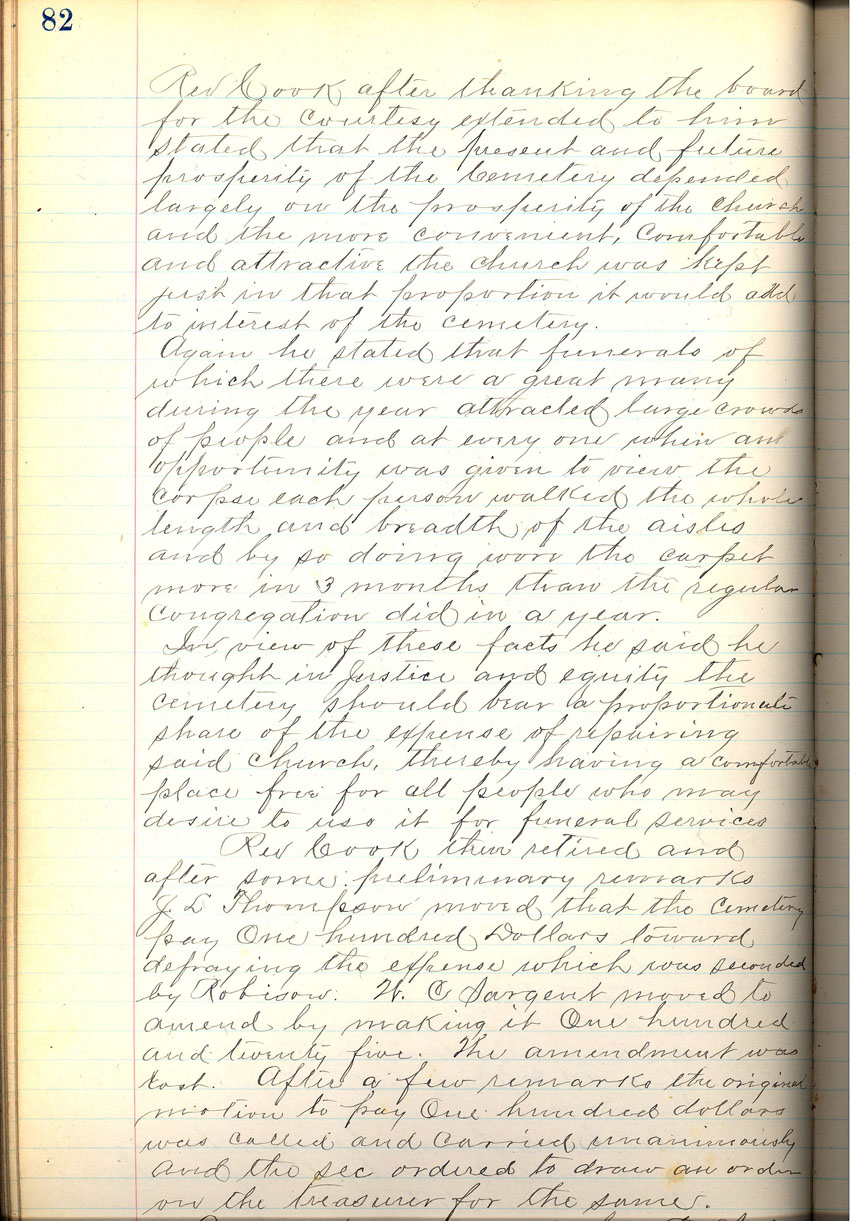 82
Rev Cook after thanking the board
for the courtesy extended to him
stated that the present and future
prosperity of the Cemetery depended
largely on the prosperity of the church
and the more convenient, Comfortable
and attractive the church was kept
just in that proportion it would add
to interest of the cemetery.
Again he stated that funerals of
which there were a great many
during the year attracted large crowds
of people and at every one when an
opportunity was given to view the
corpse each person walked the whole
length and breadth of the aisles
and by so doing wore the carpet
more in 3 months than the regular
congregation did in a year.
In view of these facts he said he
thought in Justice and equity the
cemetery should bear a proportionate
share of the expense of repairing
said Church, thereby having a comfortable
place free for all people who may
desire to use it for funeral services
Rev Cook then retired and
after some preliminary remarks
J. L Thompson moved that the Cemetery
pay One hundred Dollars toward
defraying the expense which was seconded
by Robison. W. C Sargent moved to
amend by making it One hundred
and twenty five. The amendment was
lost. After a few remarks the original
motion to pay One hundred dollars
was called and carried unanimously
and the sec ordered to draw an order
on the treasurer for the same.